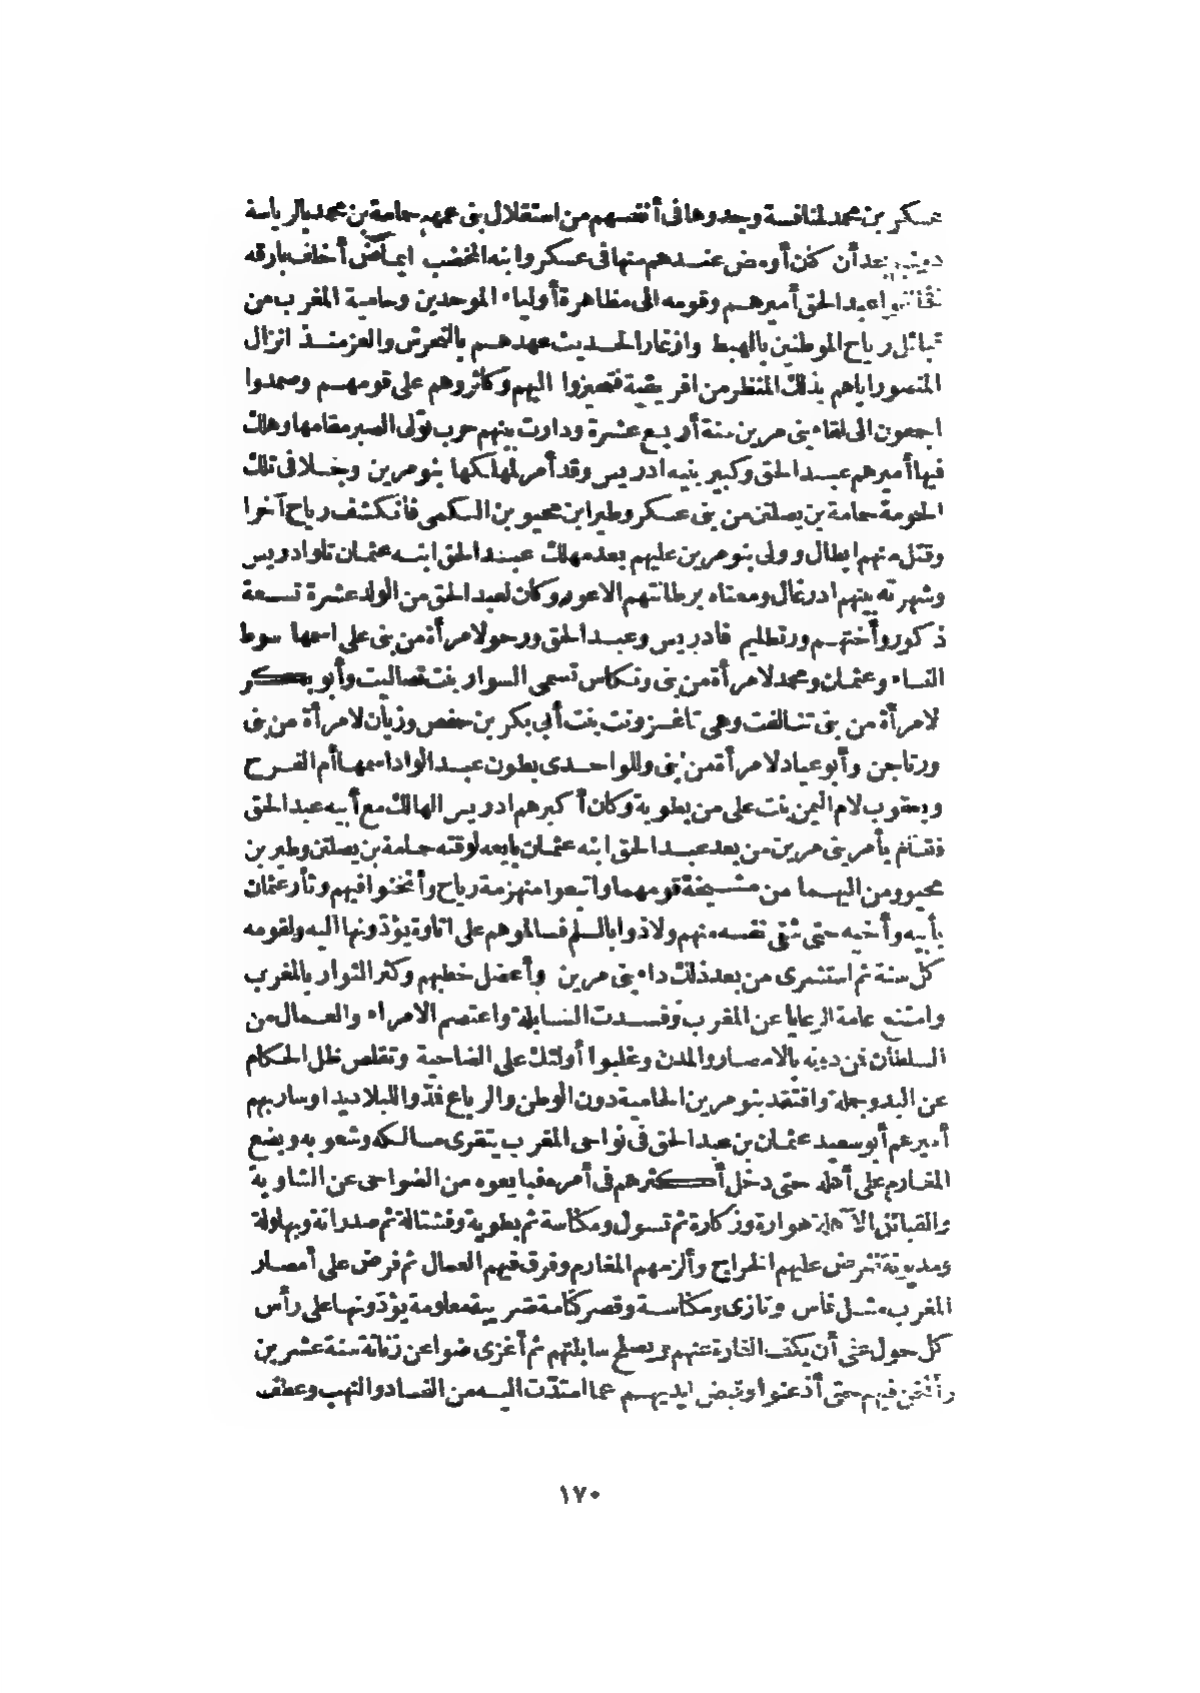 عسكر بن محمد لمنافسة وجدوها في أنفسهم من استقلال بني عمهم حمامة بن محمد بالرياسة
دونهم بعد أن كان أومض عندهم منها في عسكر وابنه المخضب ايماض أخلف بارقه
فحالفوا عبد الحق أميرهم وقومه الى مظاهرة أولياء الموحدين وحامية المغرب من
قبائل رياح الموطنين بالهبط وازغار الحديث عهدهم بالتمرس والعز منذ انزال
المنصور اياهم بذلك القطر من افريقية فتحيزوا اليهم وكاثروهم على قومهم وصمدوا
اجمعون الى لقاء بني مرين سنة أربع عشرة ودارت بينهم حرب تولى الصبر مقامها وهلك
فيها أميرهم عبد الحق وكبير بنيه ادريس وقد أمر لمهلكها بنو مرين وجلا في تلك
الحومة حمامة بن يصلتن من بني عسكر وطير ابن محيو بن السكمي فانكشف رياح آخرا
وقتل منهم ابطال وولى بنو مرين عليهم بعد مهلك عبد الحق ابنه عثمان تلو ادريس
وشهرته بينهم ادرغال ومعناه برطانتهم الاعور وكان لعبد الحق من الولد عشرة تسعة
ذكور وأختهم ورتطليم فادريس وعبد الحق ورحو لامرأة من بني على اسمها سوط
النساء وعثمان ومحمد لامرأة من بني ونكاس تسمى السوار بنت تصاليت وأبو بكر
لامرأة من بني تنالفت وهي تاغزونت بنت أبي بكر بن حفص وزيان لامرأة من بني
ورتاجن وأبو عياد لامرأة من بني وللوا حدى بطون عبد الواد اسمها أم الفرح
ويعقوب لام اليمن بنت على من بطوية وكان أكبرهم ادريس الهالك مع أبيه عبد الحق
فقام بأمر بني مرين من بعد عبد الحق ابنه عثمان بايعه لوقته حمامة بن يصلتن وطير بن
محيو ومن اليهما من مشيخة قومهما واتبعوا منهزمة رياح وأثخنوا فيهم وثأر عثمان
بأبيه وأخيه حتى شفى نفسه منهم ولاذوا بالسلم فسالموهم على اتاوة يؤدونها اليه ولقومه
كل سنة ثم استشرى من بعد ذلك داء بني مرين وأعضل خطبهم وكثر الثوار بالمغرب
وامتنع عامة الرعايا عن المغرم وفسدت السابلة واعتصم الامراء والعمال من
السلطان فمن دونه بالامصار والمدن وغلبوا أولئك على الضاحية وتقلص ظل الحكام
عن البدو جملة وافتقد بنو مرين الحامية دون الوطن والرباع فمدوا للبلاد يدا وسار بهم
أميرهم أبو سعيد عثمان بن عبد الحق في نواحى المغرب يتقرى مسالكه وشعوبه ويضع
المغارم على أهله حتى دخل أكثرهم في أمره فبايعوه من الضواحى عن الشاوية
والقبائل الآهلة هوارة وزكارة ثم تسول ومكناسة ثم بطوية وفشتالة ثم صدراتة وبهلولة
ومديونة ففرض عليهم الخراج وألزمهم المغارم وفرق فيهم العمال ثم فرض على أمصار
المغرب مثل فاس وتازى ومكناسة وقصر كتامة ضريبة معلومة يؤدونها على رأس
كل حول على أن يكف الغارة عنهم ويصلح سابلتهم ثم أغزى ضواعن زناتة سنة عشرين
وأثخن فيهم حتى أذعنوا وقبض ايديهم عما امتدت اليه من الفساد والنهب وعطف
١٧٠